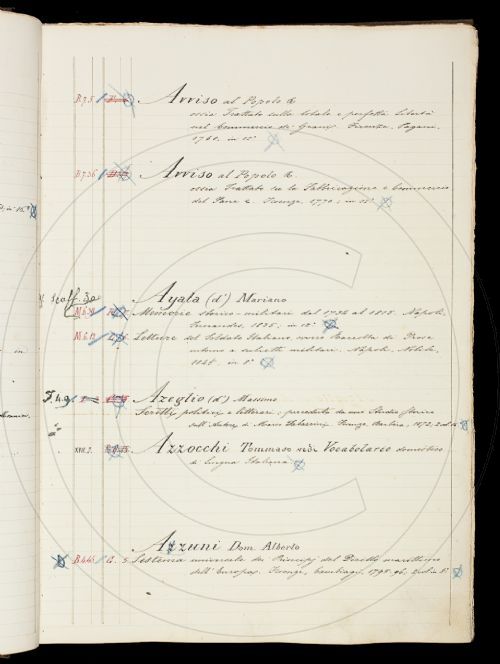 B.7.5 Avviso al Popolo &
ossia Trattato sulla totale e perfetta libertà
nel Commercio di Grani. Firenze, Pagani,
1760, in 12°
B.7.36 Avviso al Popolo &.
ossia Trattato su la Fabbricazione e Commercio
del Pane &. Firenze, 1770, in 12°
Scaff. 30
Ayala (d') Mariano
Memorie storico-militari dal 1734 al 1815. Napoli,
Fernandes, 1835, in 12°
M.6.12 Letture del Soldato Italiano, ovvero Raccolta di Prose
intorno a subietti militari. Napoli, Nobile,
in 8°
T.4.9 Azeglio (d') Massimo
Scritti politici e letterari, preceduti da uno Studio storico
sull'Autore di Marco Tabarrini. Firenze, Barbèra, 1872, 2 vol. in 16
XVII.2. Azzocchi Tommaso vedi Vocabolario domestico
di Lingua Italiana.
Azzuni Dom. Alberto
B.4.45 Sistema universale dei Principj del Diritto marittimo
dell'Europa. Firenze, Cambiagi, 1795-96, 2 vol. in 8°